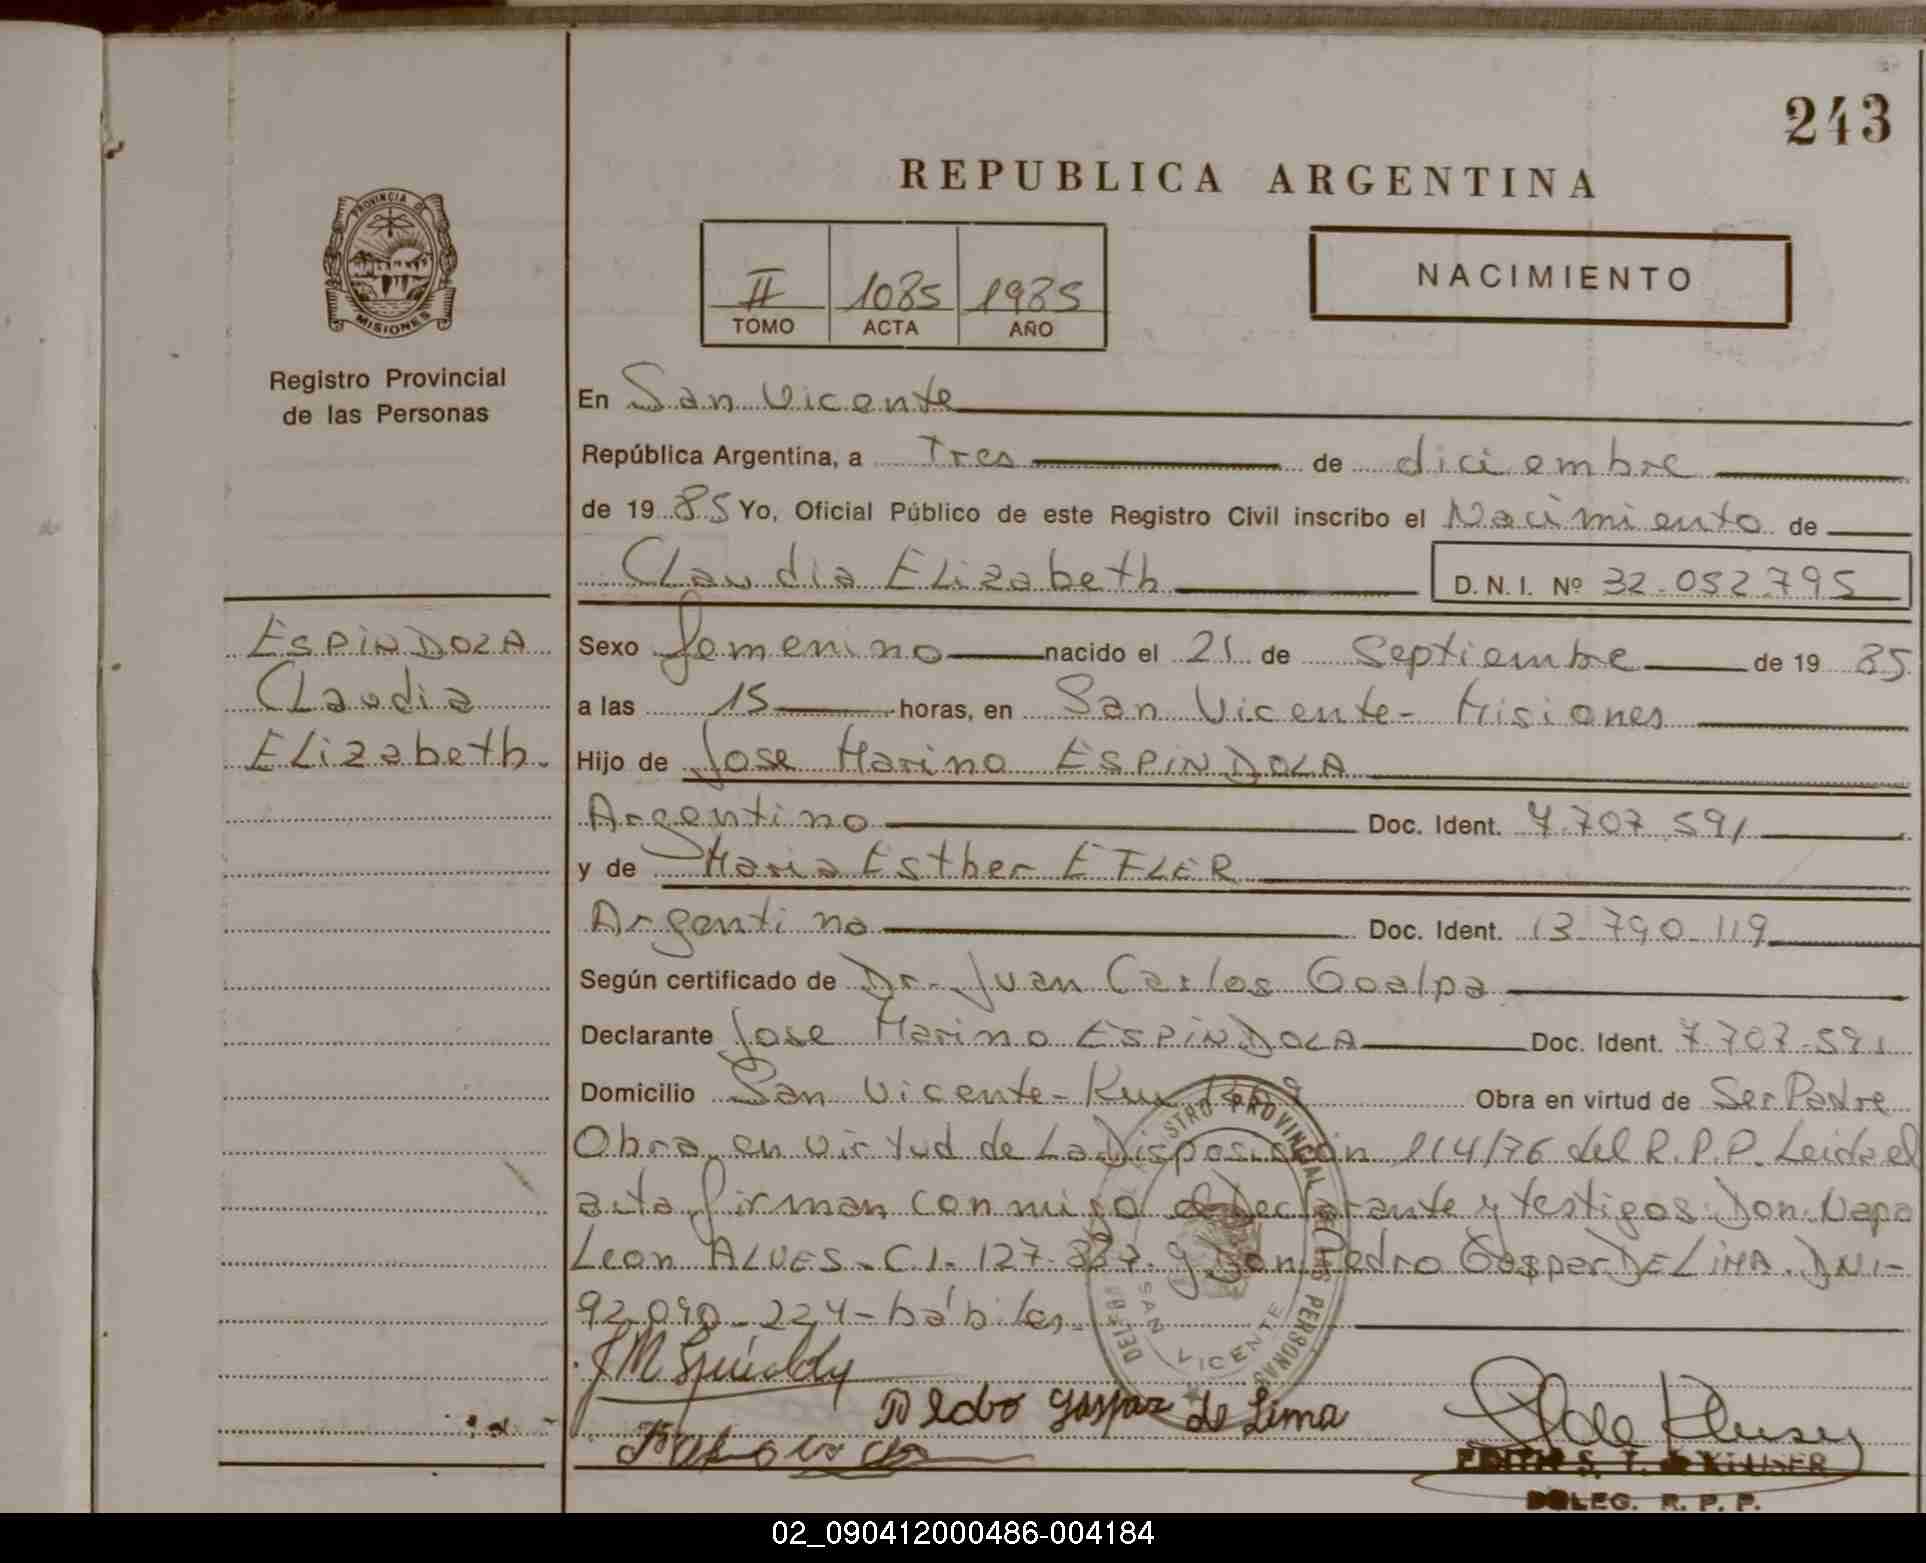 243
REPUBLICA ARGENTINA
PROVINCIA DE
MISIONES
Registro Provincial
de las Personas
II 1085 1985
TOMO ACTA AÑO
NACIMIENTO
En San Vicente
República Argentina, a Tres de diciembre
de 19 85 Yo, Oficial Público de este Registro Civil inscribo el Nacimiento de
Claudia Elizabeth D. N. I. Nº 32.052.795
ESPINDOLA
Claudia
Elizabeth.
Sexo femenino nacido el 21 de Septiembre de 19 85
a las 15 horas, en San Vicente - Misiones
Hijo de Jose Marino ESPINDOLA
Argentino Doc. Ident. 7.707.591
y de Maria Esther EFLER
Argentina Doc. Ident. 13.790.119
Según certificado de Dr. Juan Carlos Goalpa
Declarante Jose Marino ESPINDOLA Doc. Ident. 7.707.591
Domicilio San Vicente - Km Obra en virtud de Ser Padre
Obra en virtud de La Disposición 114/76 del R.P.P. Leida el
acta firman conmigo el Declarante y testigos: Don Napo
Leon ALVES - C.I. 127.837. y Don Pedro Gasper DE LIMA. DNI-
92.090.224 - hábiles.
REGISTRO PROVINCIAL DE LAS PERSONAS
SAN VICENTE
Pedro Gaspar de Lima
EDITH S. T. de KLUSER
DELEG. R. P. P.
02_090412000486-004184